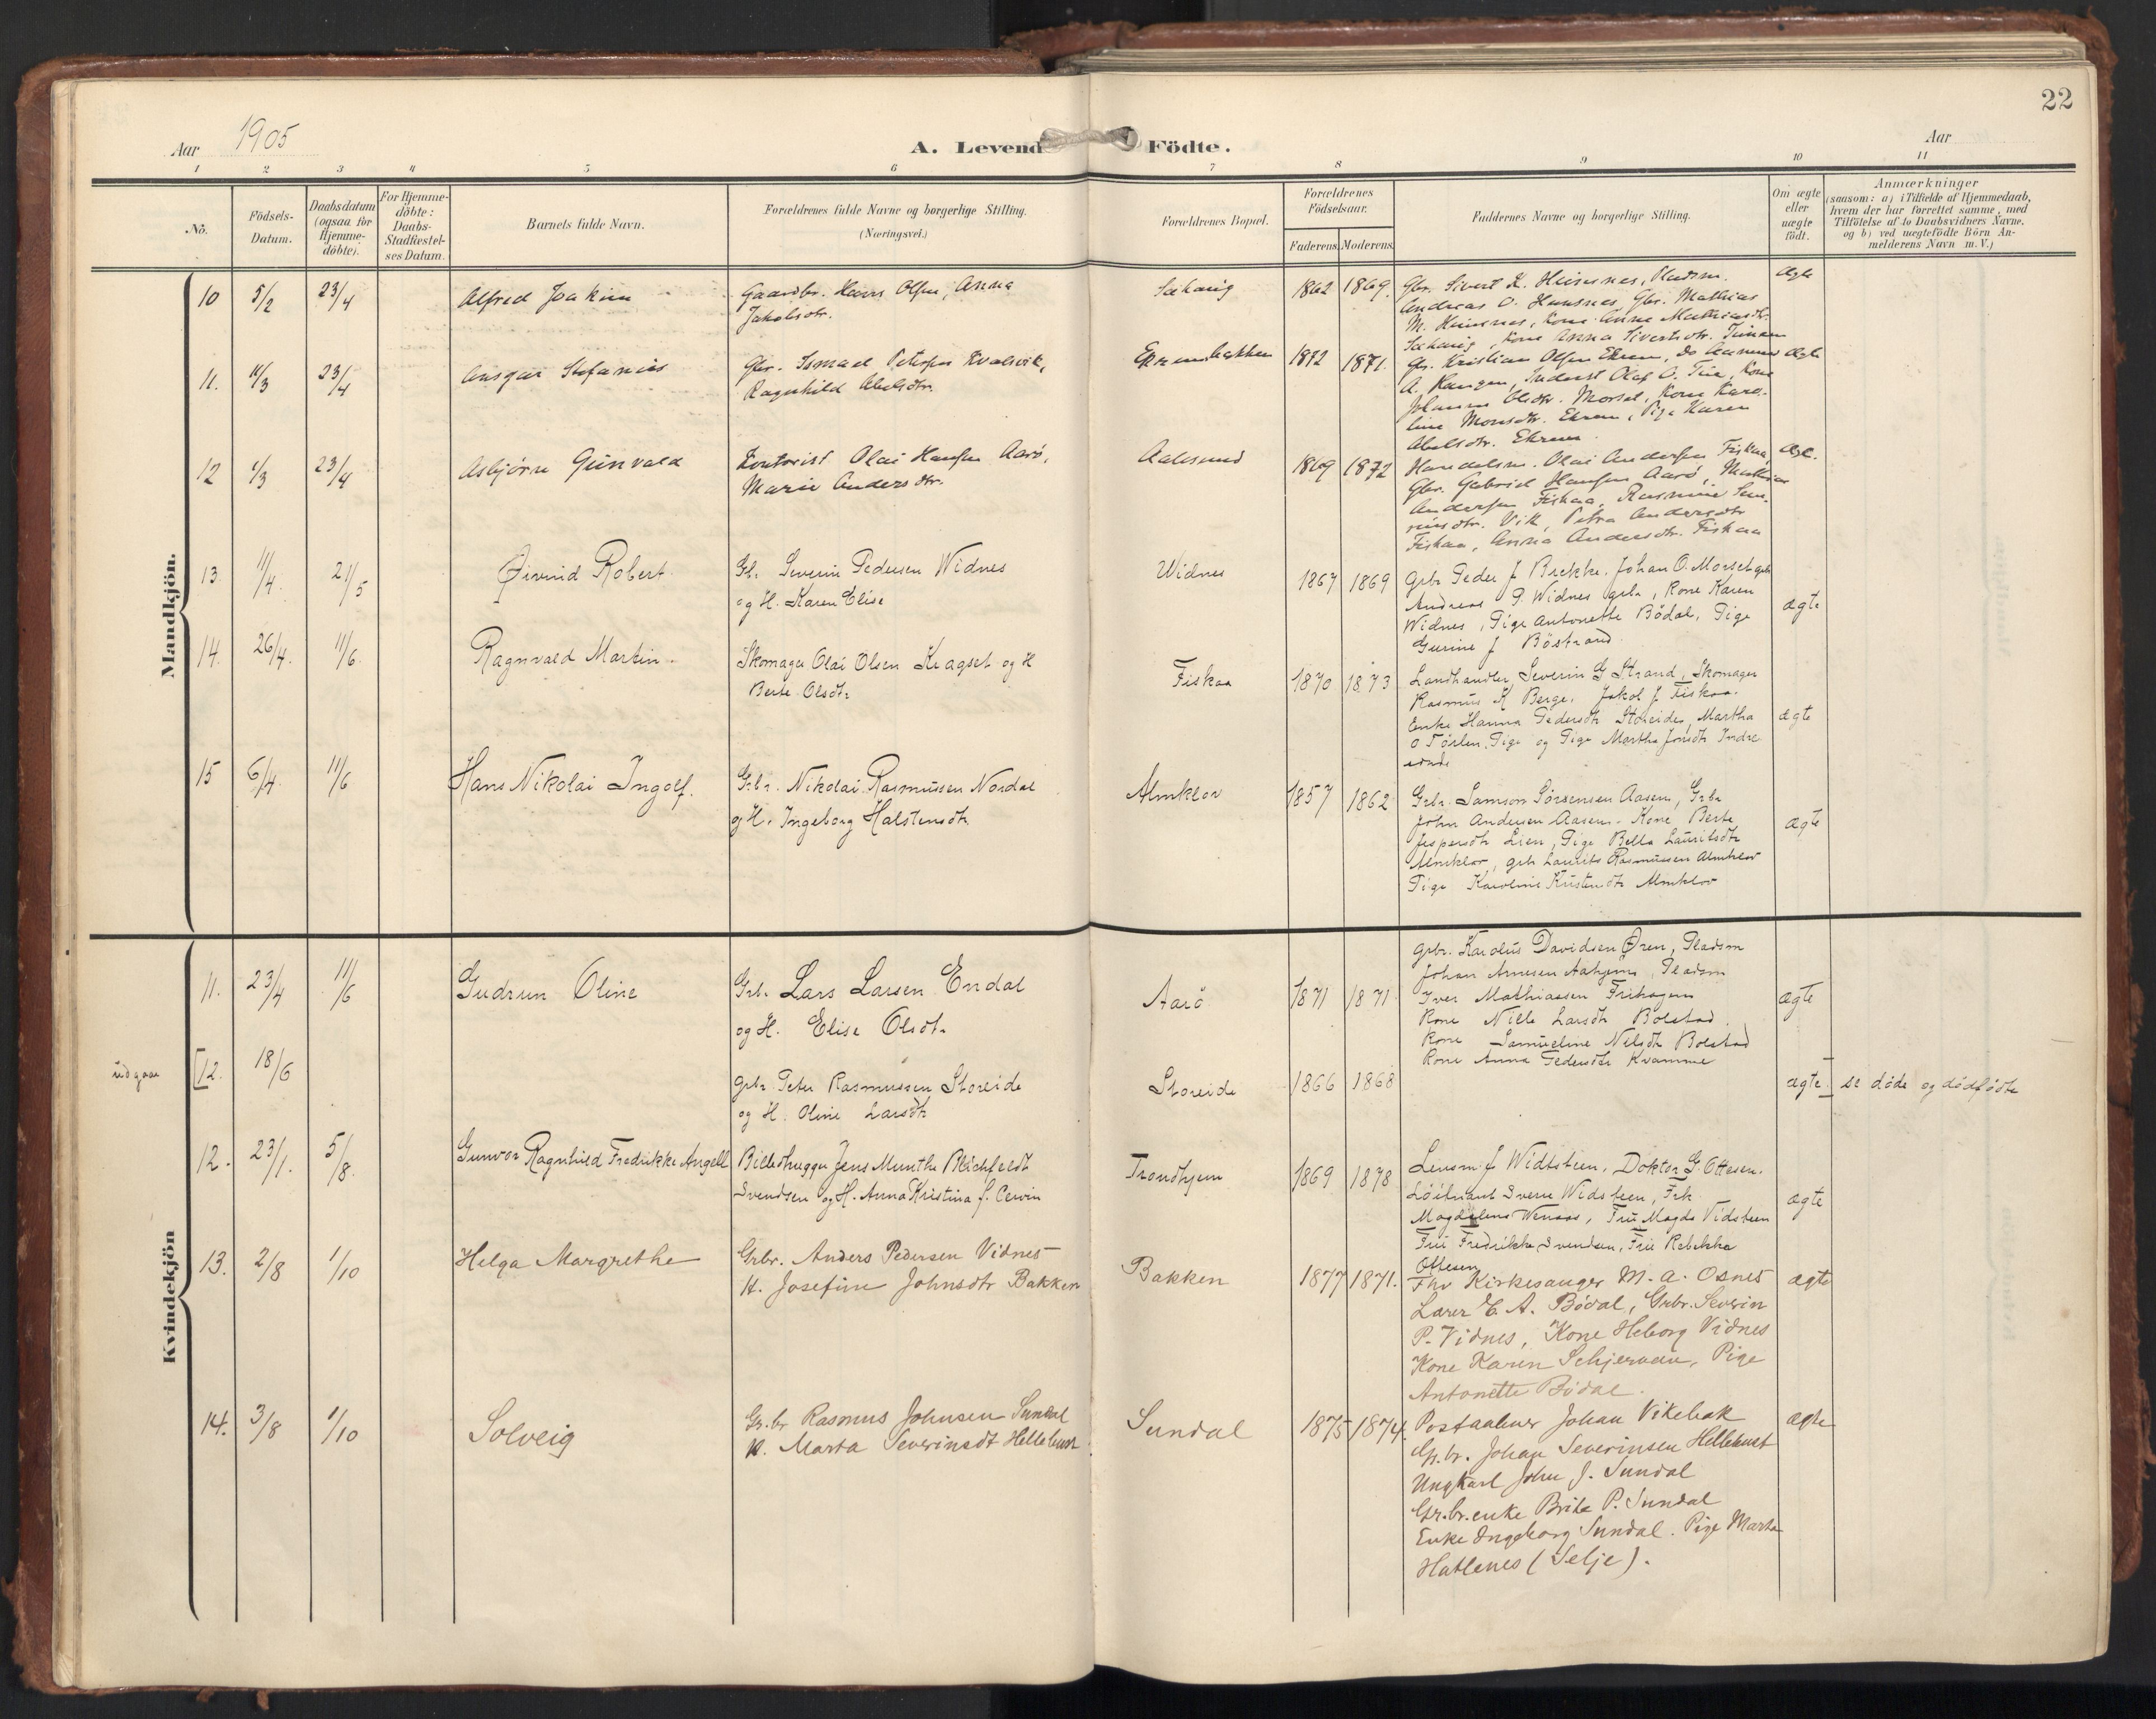 22
Aar 1905
A. Levend Födte.
Aar
1 2 3 4 5 6 7 8 9 10 11
No.
Födsels-Datum.
Daabsdatum (ogsaa for Hjemme-döbte).
For Hjemme-döbte: Daabs-Stadfæstel-ses Datum.
Barnets fulde Navn.
Forældrenes fulde Navne og borgerlige Stilling.
(Næringsvei.)
Forældrenes Bopæl.
Forældrenes Födselsaar.
Faderens. Moderens.
Faddernes Navne og borgerlige Stilling.
Om ægte eller uægte födt.
Anmærkninger
(saasom: a) i Tilfælde af Hjemmedaab,
hvem der har forrettet samme, med
Tilföielse af to Daabsvidners Navne,
og b) ved uægtefödte Börn An-
melderens Navn m. V.)
Mandkjön.
10 5/2 23/4 Alfred Joakim
Gaardbr. Hans Olsen, Anna
Jakobsdtr.
1862 1869.
Gbr. Sivert K.
Andreas O. Gbr. Mathias
M. Kone Anne Mathiasdtr.
Kone Anna Sivertsdtr.
ægte
11. 23/4 Ansgar Stefanius
Gbr. Ismael Petersen Kvalsvik,
Ragnhild Abelsdtr.
1871.
Gbr. Kristian Olsen Ekrem, do
A. Inderst Olaf O. Kone
Johanne Olsdtr. Morset, Kone Karo-
line Monsdtr. Ekrem, Pige Karen
Abelsdtr. Ekrem
ægte
12 23/4 Asbjørn Gunvald
Kontorist Olai Hansen Aarö,
Marie Andersdtr.
Aalesund
1869 1872
Handelsm. Olai Andersen Fiskaa,
Gbr. Gabriel Hansen Aarö, Mathias
Andersen Fiskaa, Rasmine Seve-
rinsdtr. Vik, Petra Andersdtr
Fiskaa, Anna Andersdtr. Fiskaa
13 11/4. 21/5 Øivind Robert.
Gb. Severin Pedersen Widnes
og H. Karen Elise
Widnes
1867 1869
Grbr Peder J Brekke. Johan O. Morset grb
Andreas P. Widnes grbr, Kone Karen
Widnes, Pige Antonette Bödal, Pige
Gurine J Böstrand.
ægte
14. 26/4. 11/6. Ragnvald Martin.
Skomager Olai Olsen Kragset og H
Berte Olsdtr
Fiskaa
1870 1873
Landhandler Severin G Strand, Skomager
Rasmus K Berge, Jakob J Fiskaa.
Enke Hanna Pedersdtr Storeide, Martha
O Törlen, Pige og Pige Martha Jonsdtr Indre
eide
ægte
15 6/4. 11/6 Hans Nikolai Ingolf.
Grbr. Nikolai Rasmussen Nordal
og H. Ingeborg Halstensdtr
Almklov
1857 1862
Grbr. Samson Sörensen Aasen, Grbr
John Andersen Aasen. Kone Berte
Jespersdtr Lien, Pige Bella Lauritsdtr
Almklov, grb Laurits Rasmussen Almklov
Pige Karoline Kristensdtr Almklov
ægte
Kvindekjön
11. 23/4 11/6 Gudrun Oline
Grbr Lars Larsen Endal
og H. Elise Olsdtr
Aarö
1871 1871
grbr. Karolus Davidsen Øren, Pladsm
Johan Arnesen Aahjem, Pladsm
Iver Mathiassen Frihagen
Kone Nille Larsdtr Bolstad.
Kone Samueline Nilsdtr Bolstad
Kone Anna Pedersdtr Kvamme
ægte
udgaar [12. 18/6
grbr. Peter Rasmussen Storeide
og H. Oline Larsdtr
Storeide
1866 1868
ægte.] se döde og dödfödte
12. 23/1. 5/8. Gunvor Ragnhild Fredrikke Angell
Billedhugger Jens Munthe
Svendsen og H. Anna Kristina f.
Trondhjem
1869 1878
Lensm. J Widtsteen, Doktor G. Ottesen.
Löitnant Sverre Widsteen, Frk
Magdalene Wenaas, Fru Magda Vidsteen
Fru Fredrikke Svendsen, Frü Rebekka
Ottesen
ægte
13. 2/8 1/10 Helga Margrethe
Grbr. Anders Pedersen Vidnes
H. Josefine Johnsdtr Bakken
Bakken
1877 1871.
Fhv Kirkesanger M. A. Osnes
Lærer E. A. Bödal, Grbr. Severin
P. Vidnes, Kone Heborg Vidnes
Kone Karen Pige
Antonette Bödal.
ægte
14. 3/8 1/10 Solveig
Gr.br Rasmus Johnsen Sundal
H. Marta Severinsdt Hellebust
Sundal
1875 1874.
Postaabner Johan Vikebak
Gr.br. Johan Severinsen Hellebust
Ungkarl John J. Sundal
Gr.br.enke Brite P. Sundal
Enke Ingeborg Sundal. Pige Marta
Hatlenes (Selje).
ægte